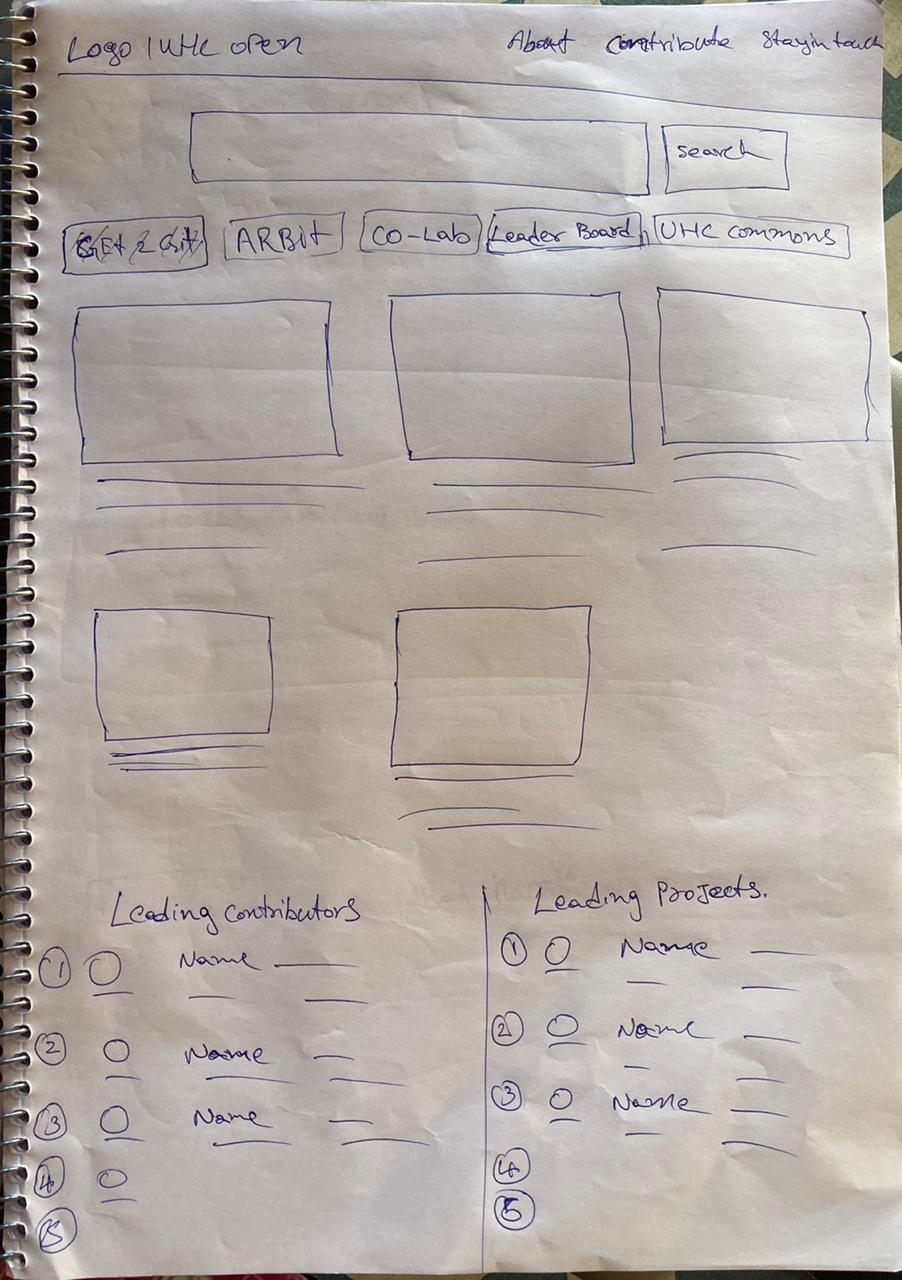 Logo | UHC open About Contribute Stay in touch
search
GEt 2 Git ARBit CO-Lab Leader Board UHC commons
Leading contributors
1 Name
2 Name
3 Name
4
5
Leading Projects.
1 Name
2 Name
3 Name
4
5